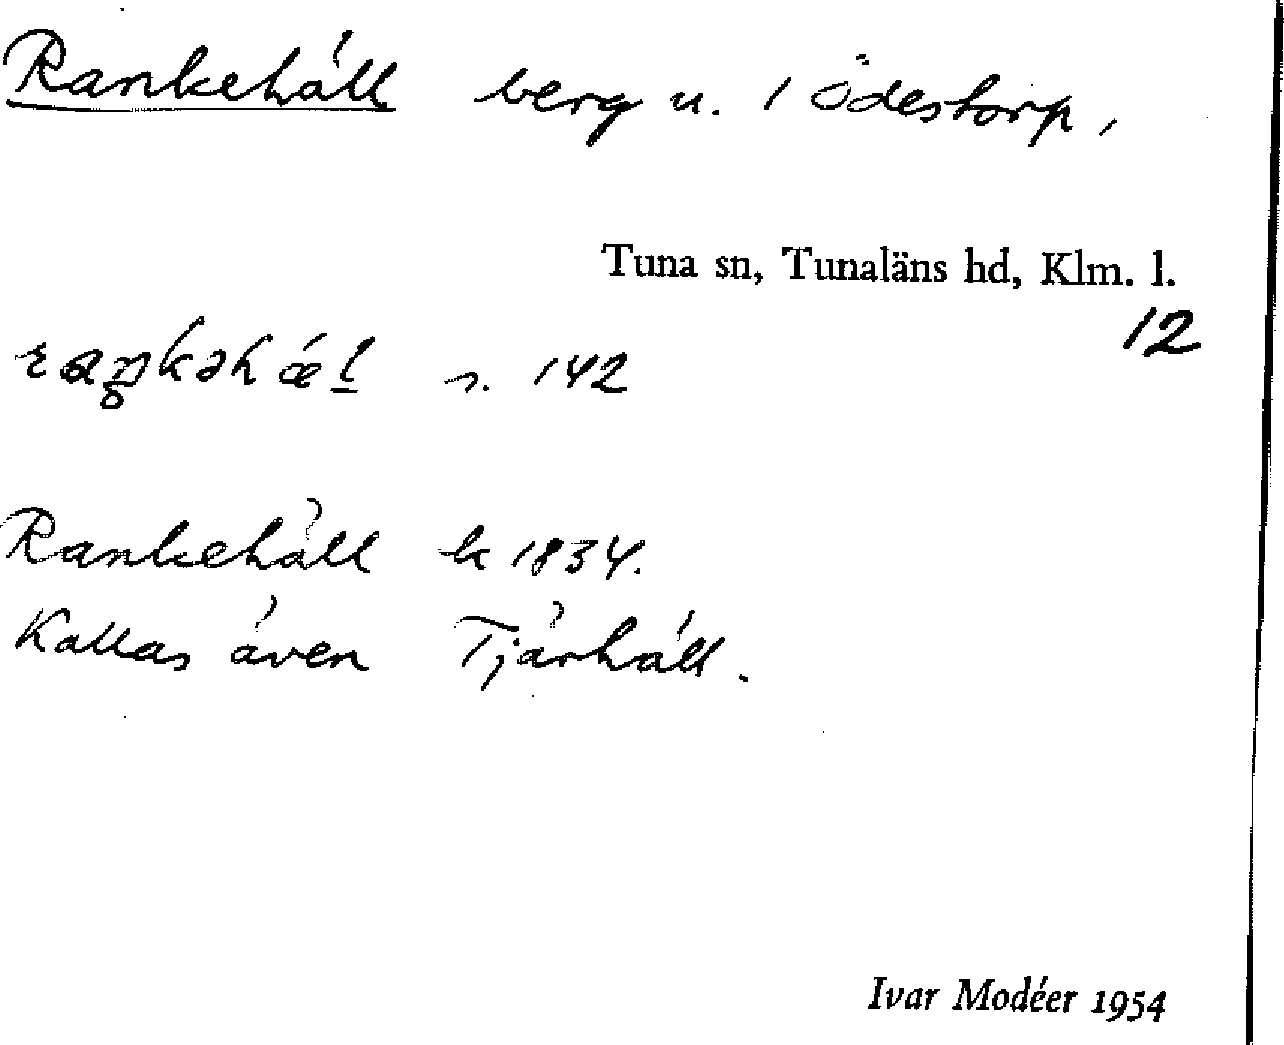 Rankehäll berg u. 1 Ödestorp,
Tuna sn, Tunaläns hd, Klm. l.
12
s. 142
Rankehäll k 1834.
Kallas även Tjärhäll.
Ivar Modéer 1954